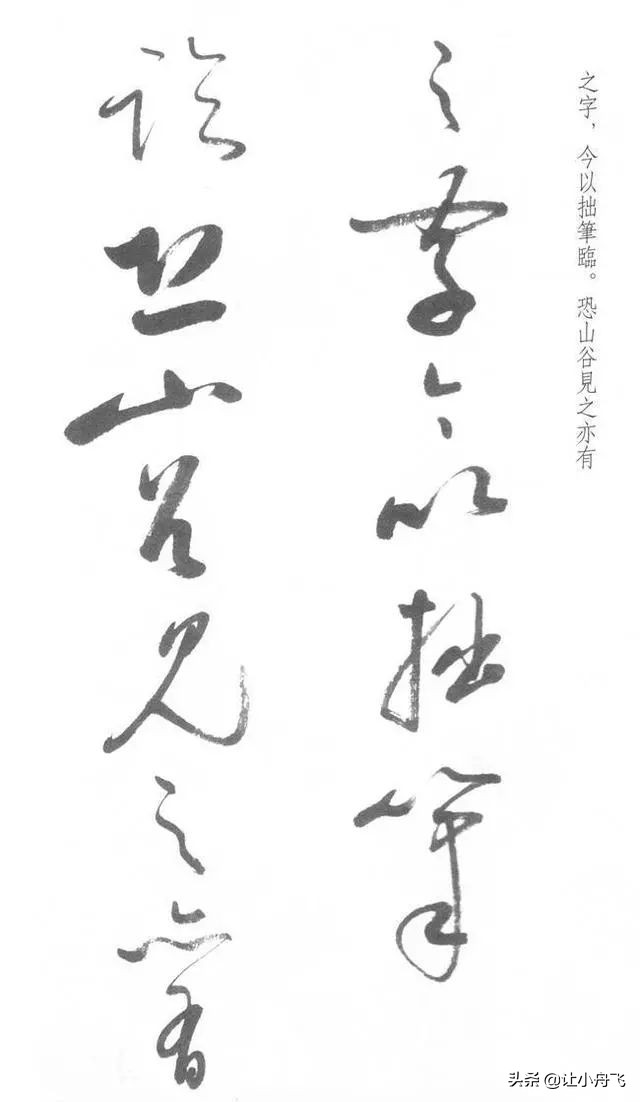 之字，今以拙筆臨。恐山谷見之亦有
之字今以拙筆
臨恐山谷見之亦有
头条 @让小舟飞